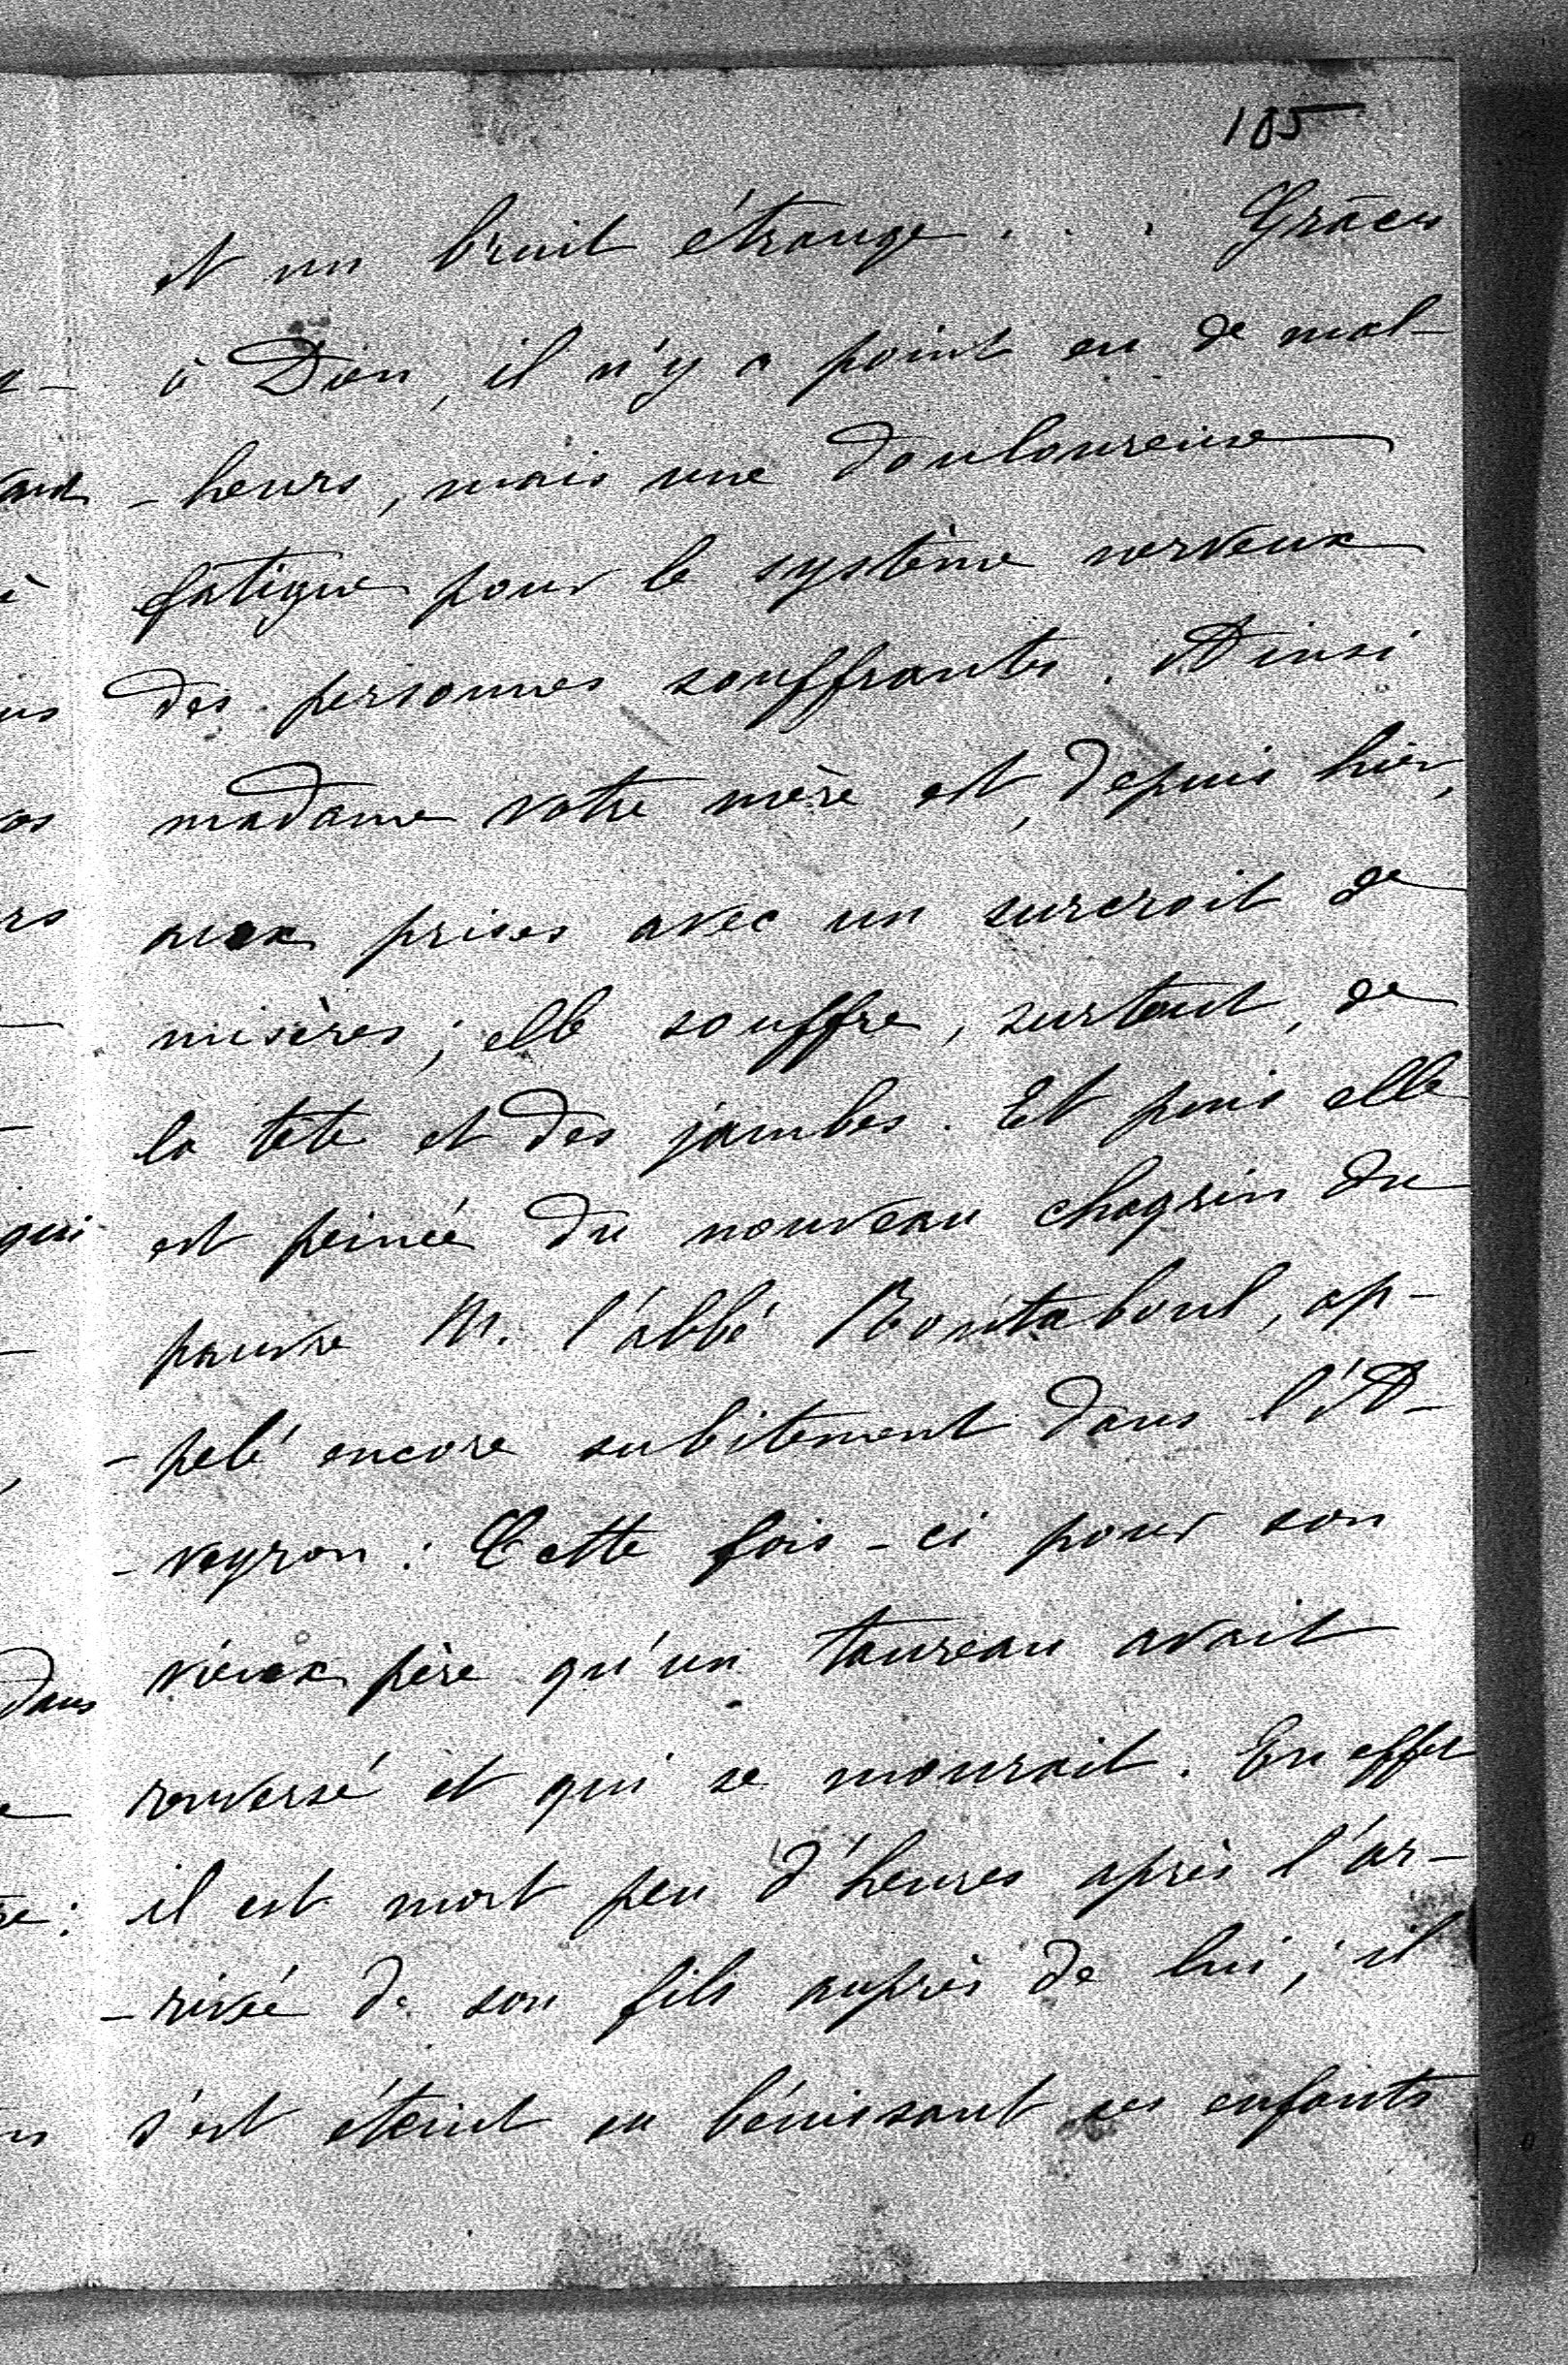 105
et un bruit étrange . . . Grâces
à Dieu, il n'y a point eu de mal-
-heurs, mais une douloureuse
fatigue pour le système nerveux
des personnes souffrantes. Ainsi
madame votre mère est, depuis hier,
aux prises avec un surcroit de
misères; elle souffre, surtout, de
la tete et des jambes. Et puis elle
est peinée du nouveau chagrin du
pauvre M. l'abbé Boutaboul, ap-
-pelé encore subitement dans l'A-
-veyron: Cette fois-ci pour son
vieux père qu'un taureau avait
renversé et qui se mourait. En effet
il est mort peu d'heures après l'ar-
-rivée de son fils auprès de lui; il
s'est éteint en bénissant ses enfants
qui
dans